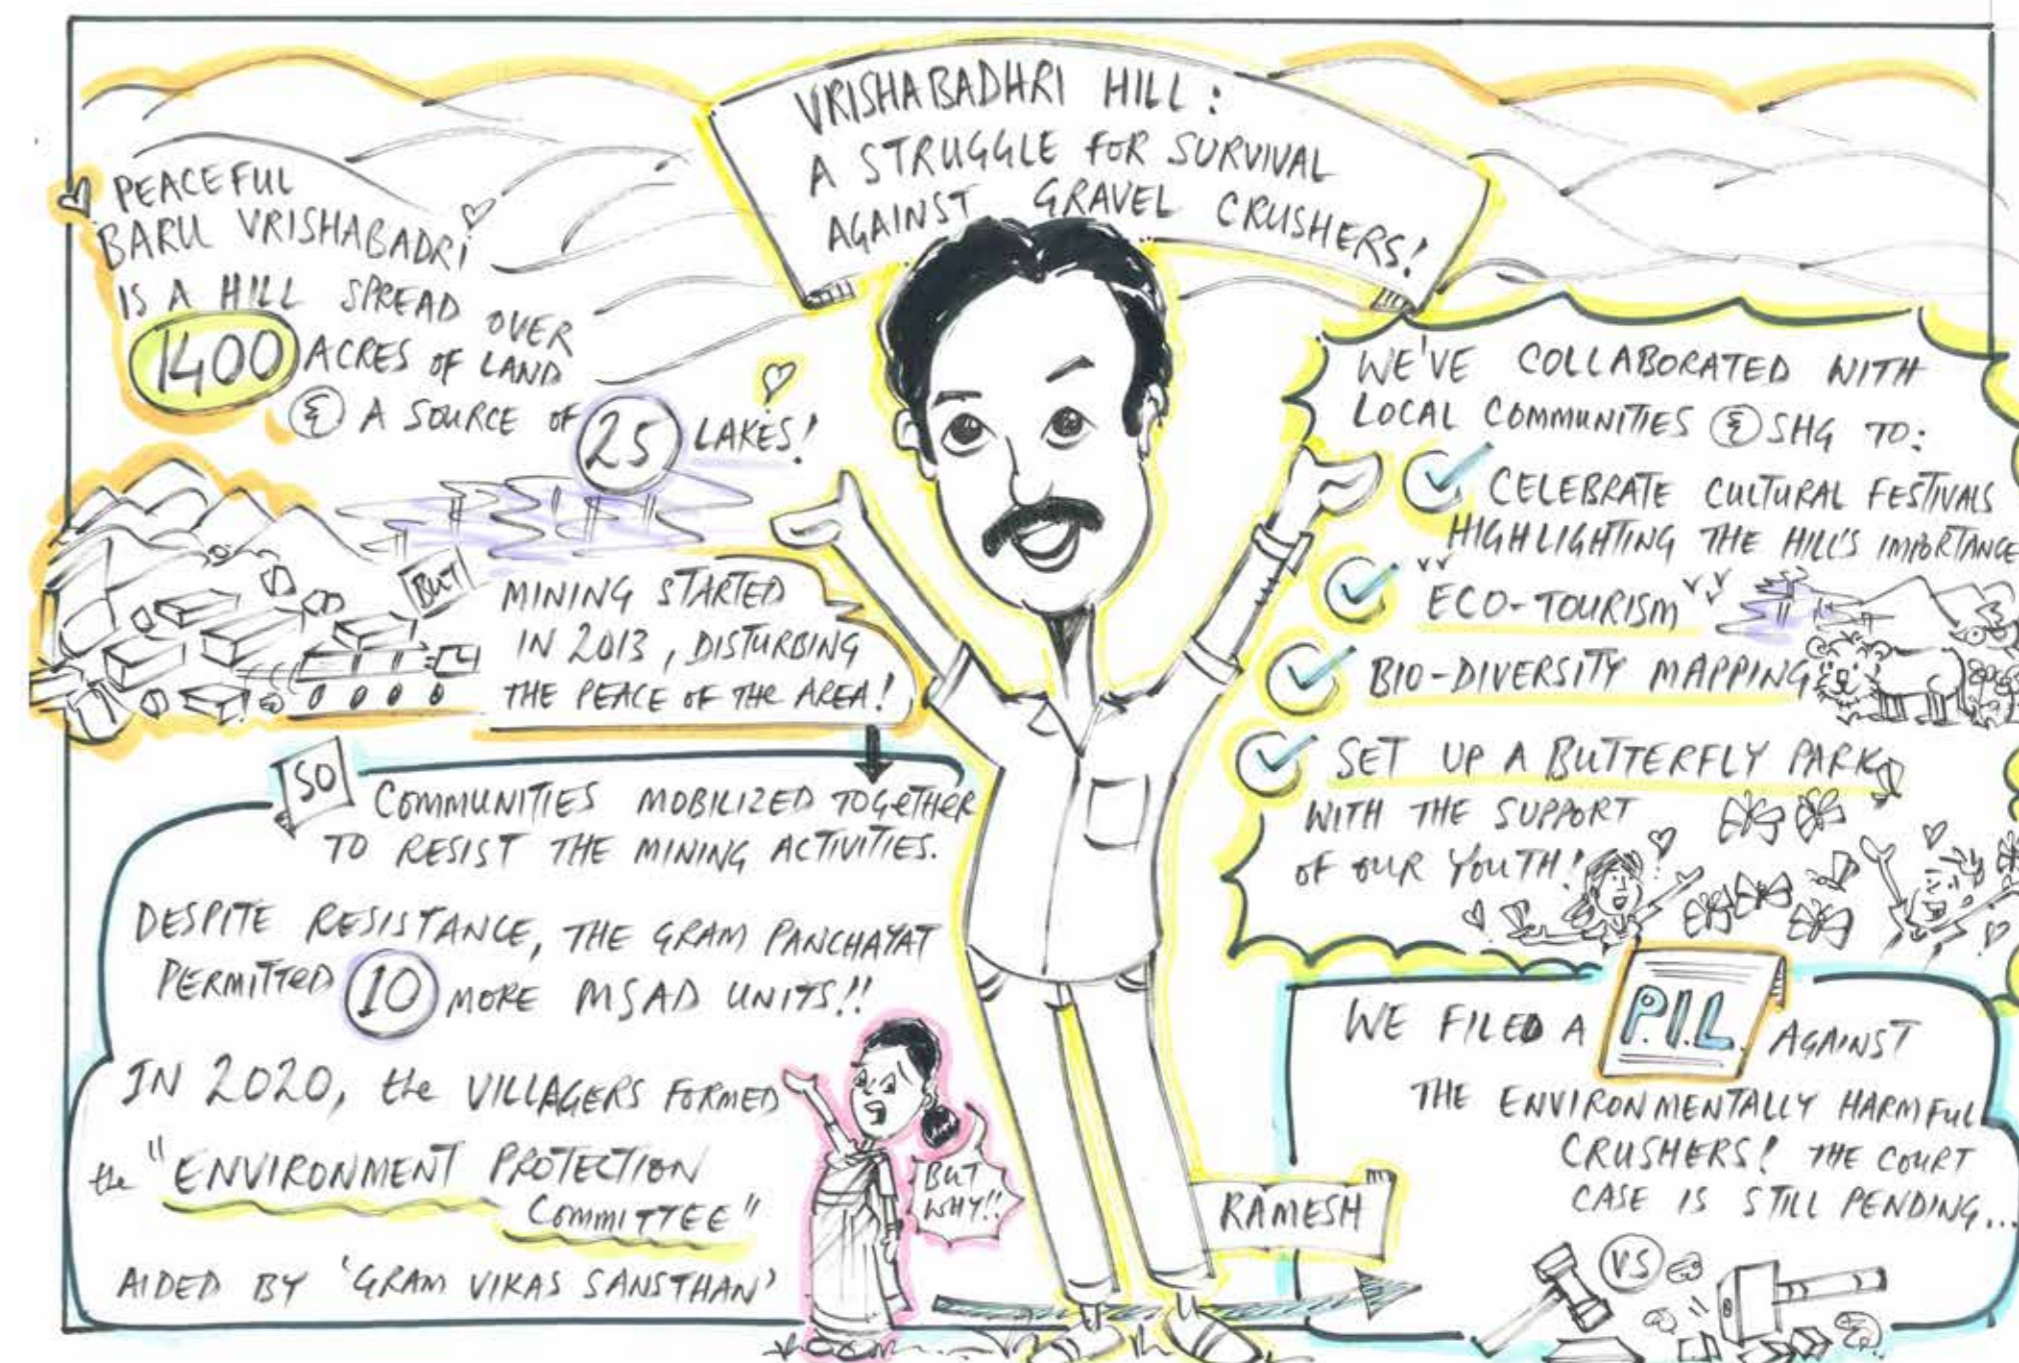 VRISHABADHRI HILL:
A STRUGGLE FOR SURVIVAL
AGAINST GRAVEL CRUSHERS!
PEACEFUL
BARU VRISHABADRI
IS A HILL SPREAD OVER
1400 ACRES OF LAND
& A SOURCE OF 25 LAKES!
BUT
MINING STARTED
IN 2013, DISTURBING
THE PEACE OF THE AREA!
SO COMMUNITIES MOBILIZED TOGETHER
TO RESIST THE MINING ACTIVITIES.
DESPITE RESISTANCE, THE GRAM PANCHAYAT
PERMITTED 10 MORE MSAD UNITS!!
IN 2020, the VILLAGERS FORMED
the "ENVIRONMENT PROTECTION
COMMITTEE"
AIDED BY 'GRAM VIKAS SANSTHAN'
BUT
WHY!!
RAMESH
WE'VE COLLABORATED WITH
LOCAL COMMUNITIES & SHG TO:
CELEBRATE CULTURAL FESTIVALS
HIGHLIGHTING THE HILL'S IMPORTANCE
ECO-TOURISM
BIO-DIVERSITY MAPPING
SET UP A BUTTERFLY PARK
WITH THE SUPPORT
OF OUR YOUTH!
WE FILED A P.I.L. AGAINST
THE ENVIRONMENTALLY HARMFUL
CRUSHERS! THE COURT
CASE IS STILL PENDING...
VS